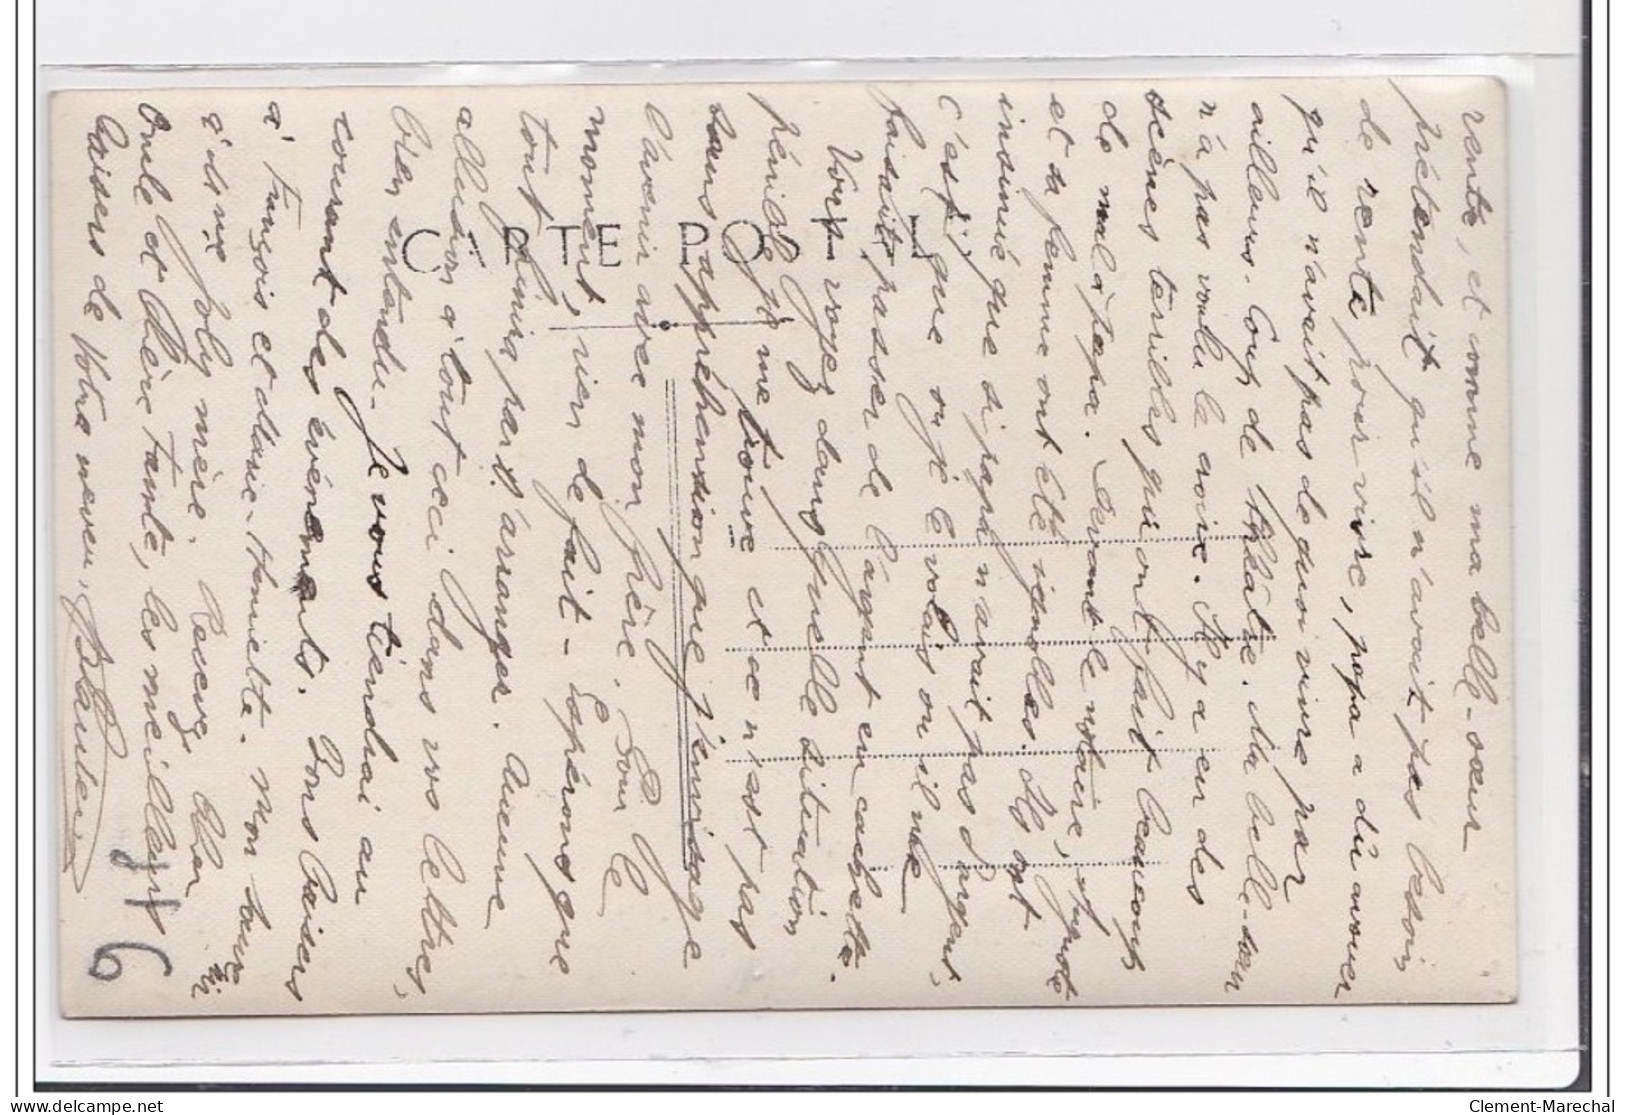 rente, et comme ma belle-sœur
prétendait qu'il n'avait pas besoin
de rente pour vivre, papa a dû avouer
qu'il n'avait pas de quoi vivre par
ailleurs. Coup de théâtre. Ma belle-sœur
n'a pas voulu le croire. Il y a eu des
scènes terribles qui ont fait beaucoup
de mal à papa. Devant le notaire, Hypote
et sa femme ont été ignobles. Ils ont
insinué que si papa n'avait pas d'argent,
c'est que ou je le volais ou il me
faisait passer de l'argent en cachette.
Vous voyez dans quelle situation
pénible je me trouve et ce n'est pas
sans appréhension que j'envisage
l'avenir avec mon frère. Pour le
moment, rien de fait - Espérons que
tout finira par s'arranger. Aucune
allusion à tout ceci dans vos lettres,
bien entendu. Je vous tiendrai au
courant des événements. Bons baisers
à François et Marie-Henriette. Mon
à Joly mère. Recevez, cher
Oncle et chère Tante, les meilleurs
baisers de votre neveu,
CARTE POSTALE
6
Clement-Marechal